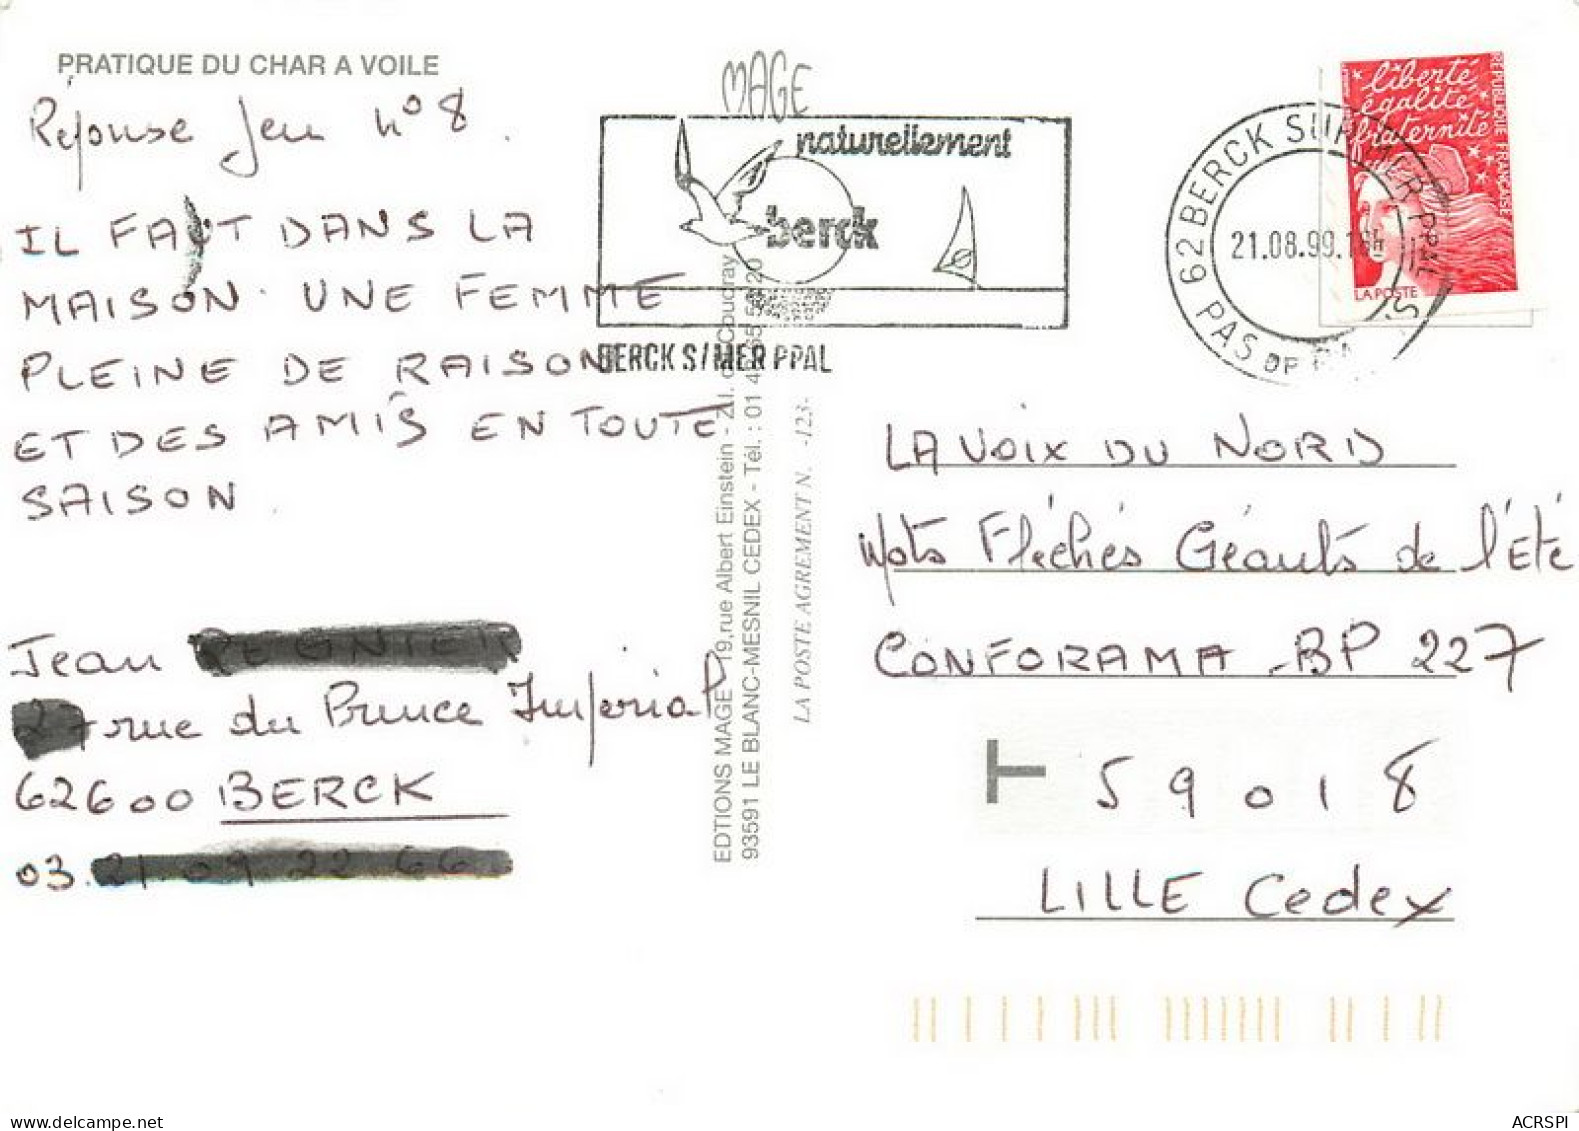 PRATIQUE DU CHAR A VOILE
Réponse Jeu n° 8.
IL FAUT DANS LA
MAISON. UNE FEMME
PLEINE DE RAISON
ET DES AMIS EN TOUTE
SAISON
Jean
rue du Prince Impérial
62600 BERCK
03.
MAGE
naturellement
berck
BERCK S/MER PPAL
EDTIONS MAGE 19,rue Albert Einstein - Z.I. Coudray
93591 LE BLANC-MESNIL CEDEX - Tél. : 01 48 65 20
LA POSTE AGREMENT N. -123-
62 BERCK SUR MER PPAL
21.08.99.16h
PAS DE
liberté
égalité
fraternité
REPUBLIQUE FRANCAISE
LA POSTE
LA VOIX DU NORD
Mots Fléchés Géants de l'été
CONFORAMA - BP 227
T 59018
LILLE Cedex
delcampe.net
ACRSPI